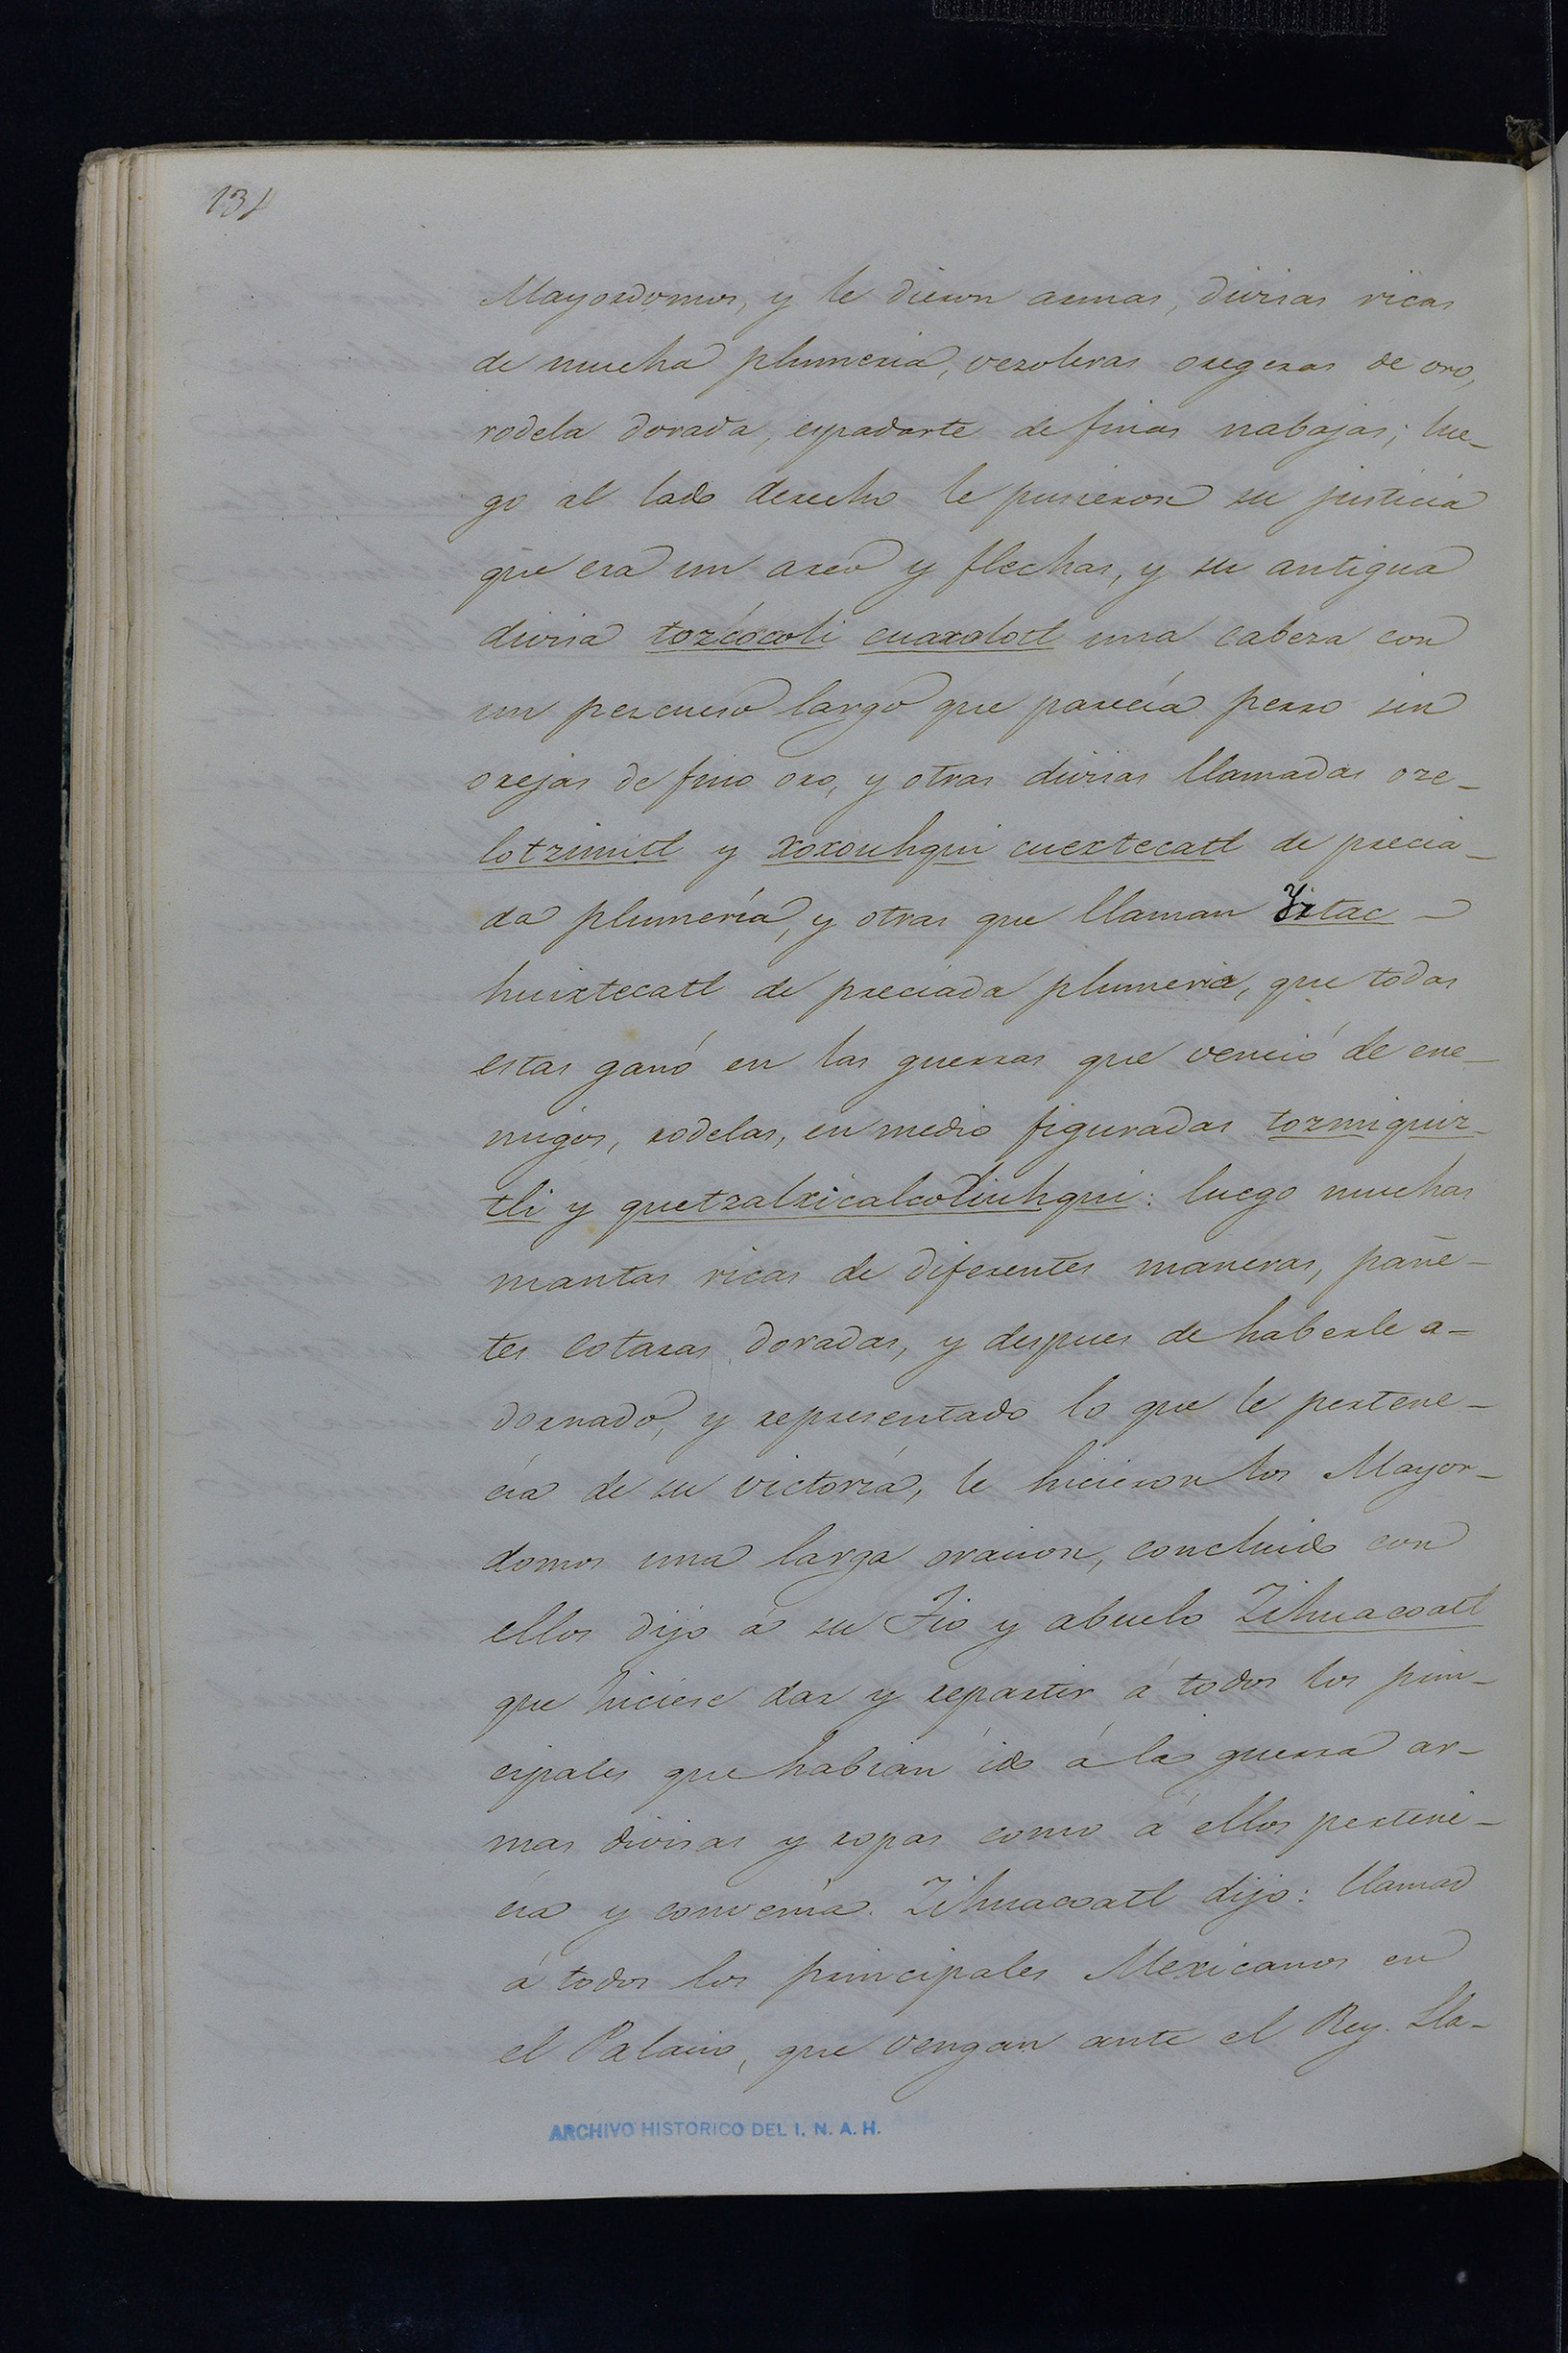 134
Mayordomos, y le dieron armas, divisas ricas
de mucha plumeria, vezoleras oregeras de oro,
rodela dorada, espadarte de finas nabajas; lue-
go al lado derecho le pusieron su justicia
que era un arco y flechas, y su antigua
divisa tozcócoli cuaxolotl una cabeza con
un pezcueso largo que parecía perro sin
orejas de fino oro, y otras divisas llamadas oze-
lotzimitl y xoxouhqui cuextecatl de precia-
da plumería, y otras que llaman Yztac
huixtecatl de preciada plumeria, que todas
estas ganó en las guerras que venció de ene-
migos, rodelas, en medio figuradas tozmiquiz-
tli y quetzalxicalcoliuhqui: luego muchas
mantas ricas de diferentes maneras, pañe-
tes cotaras doradas, y despues de haberle a-
dornado, y representado lo que le pertene-
cia de su victoria, le hicieron los Mayor-
domos una larga oracion, concluido con
ellos dijo á su Tio y abuelo Zihuacoatl
que hiciese dar y repartir á todos los prin-
cipales que habian ido á la guerra ar-
mas divisas y ropas como á ellos pertene-
cia y convenía. Zihuacoatl dijo: llamad
á todos los principales Mexicanos en
el Palacio, que vengan ante el Rey. Lla-
ARCHIVO HISTORICO DEL I. N. A. H.